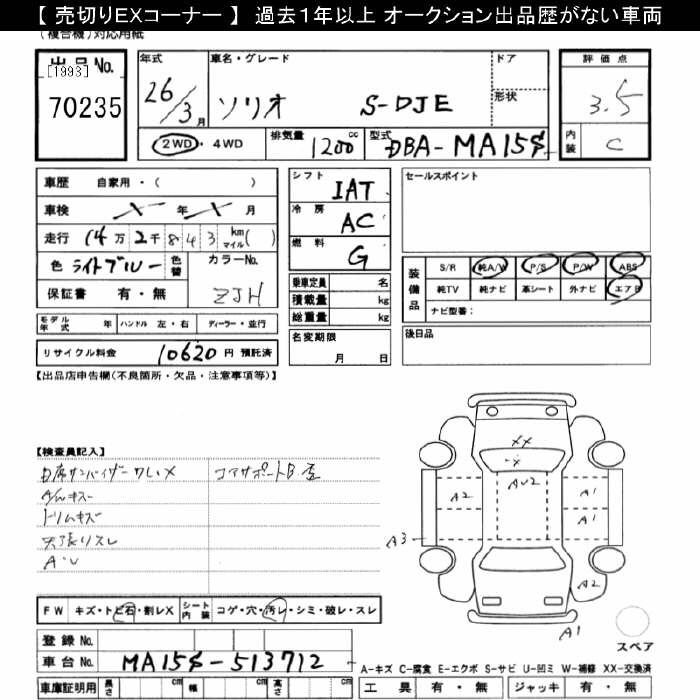 【 売切りEXコーナー 】 過去1年以上 オークション出品歴がない車両
(複合機)対応用紙
出品No.
[1993]
70235
年式
26/3月
車名・グレード
ソリオ S-DJE
ドア
形状
評価点
3.5
内装 C
2WD ・ 4WD
排気量 1200 cc
型式 DBA-MA15S
車歴 自家用・( )
車検 X 年 X 月
走行 14万2千843 km マイル( )
色 ライトブルー 色替
カラーNo. ZJH
保証書 有・無
シフト IAT
冷房 AC
燃料 G
乗車定員 名
積載量 kg
総重量 kg
名変期限 月 日
セールスポイント
装備品
S/R 純A/W P/S P/W ABS
純TV 純ナビ 革シート 外ナビ エアB
ナビ型番:
後日品
モデル年式 年 ハンドル 左・右 ディーラー・並行
リサイクル料金 10620 円 預託済
【出品店申告欄(不良箇所・欠品・注意事項等)】
【検査員記入】
天張りスレ
A・U
XX
X
AU2
A2
A1
A1
A3
A2
A1
FW キズ・トビ石・割レX シート内装 コゲ・穴・汚レ・シミ・破レ・スレ
スペア
登録No.
車台No. MA15S-513712
A-キズ C-腐食 E-エクボ S-サビ U-凹ミ W-補修 XX-交換済
車庫証明用 長さ cm 幅 cm 高さ cm
工具 有・無 ジャッキ 有・無